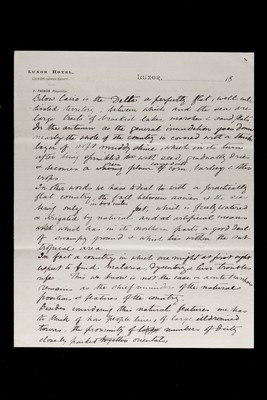 LUXOR HOTEL,
LUXOR (Upper Egypt)
LUXOR, 18
Below Cairo is the Delta a perfectly flat, well cul-
tivated territory, between which and the sea are
large tracts of brackish lakes marshes & sand flats.
In the autumn as the general inundation goes down
nearly the whole of the country is covered with a thick
layer of soft muddy slime, which in its turn
after being sprinkled with seed, gradually dries
& becomes a plain of corn, barley & other
crops.
In other words we have to deal to with a practically
flat country, the fall between assouan & the sea
being only feet, which is freely watered
& irrigated by natural and at artificial means
which has in its northern parts a good deal
of swampy ground & which lies within the sub
tropical area.
In fact a country in which one might at first sight
expect to find malaria, dysentery & liver troubles
rife. This as known is not the case
remains as the chief reminder of the natural
position & features of the country.
Besides considering the natural features one has
to think of how people live, of large illdrained
towns. the proximity of numbers of dirty
closely packed orientals,